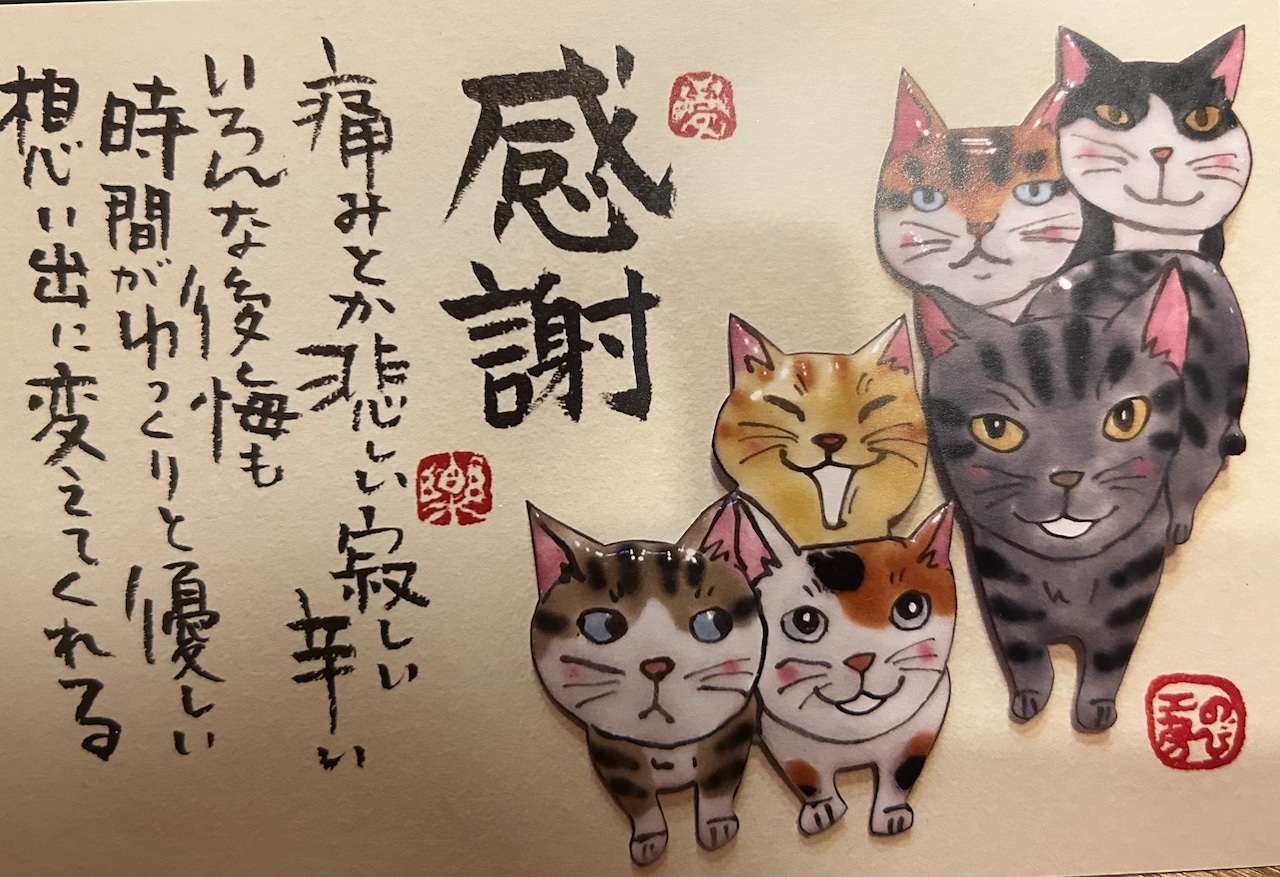 夢
感謝
樂
痛みとか悲しい寂しい
辛い
いろんな後悔も
時間がゆっくりと優しい
想い出に変えてくれる